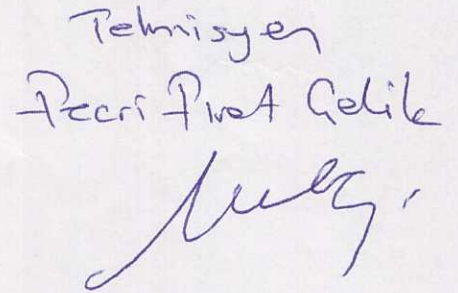 Teknisyen
Fecri Fırat Çelik